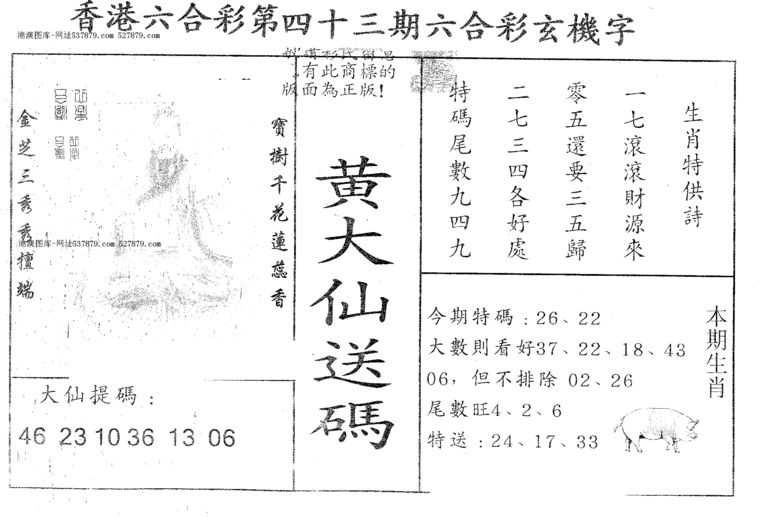 香港六合彩第四十三期六合彩玄機字
港澳图库-网址537879.com 527879.com
有此商標的
版面為正版!
生肖特供詩
一七滾滾財源來
零五還要三五歸
二七三四各好處
特碼尾數九四九
黄大仙送碼
寶樹千花蓮蕊香
金芝三秀秀檀端
港澳图库-网址537879.com 527879.com
大仙提碼:
46 23 10 36 13 06
本期生肖
今期特碼:26、22
大數則看好37、22、18、43
06，但不排除 02、26
尾數旺4、2、6
特送:24、17、33